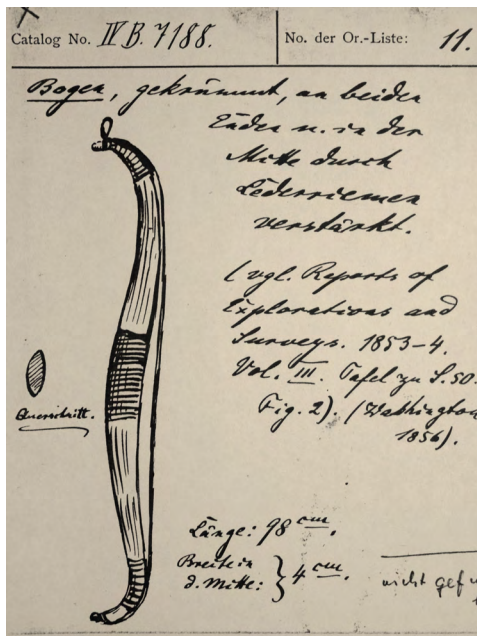 Catalog No. IV B. 7188.
No. der Or.-Liste: 11.
Bogen, gekrümmt, an beiden
Enden u. in der
Mitte durch
Lederriemen
verstärkt.
(vgl. Reports of
Explorations and
Surveys. 1853-4.
Vol. III. Tafel zu S. 50.
Fig. 2). (Washington
1856).
Querschnitt.
Länge: 98 cm.
Breite in
d. Mitte: } 4 cm.
nicht gef